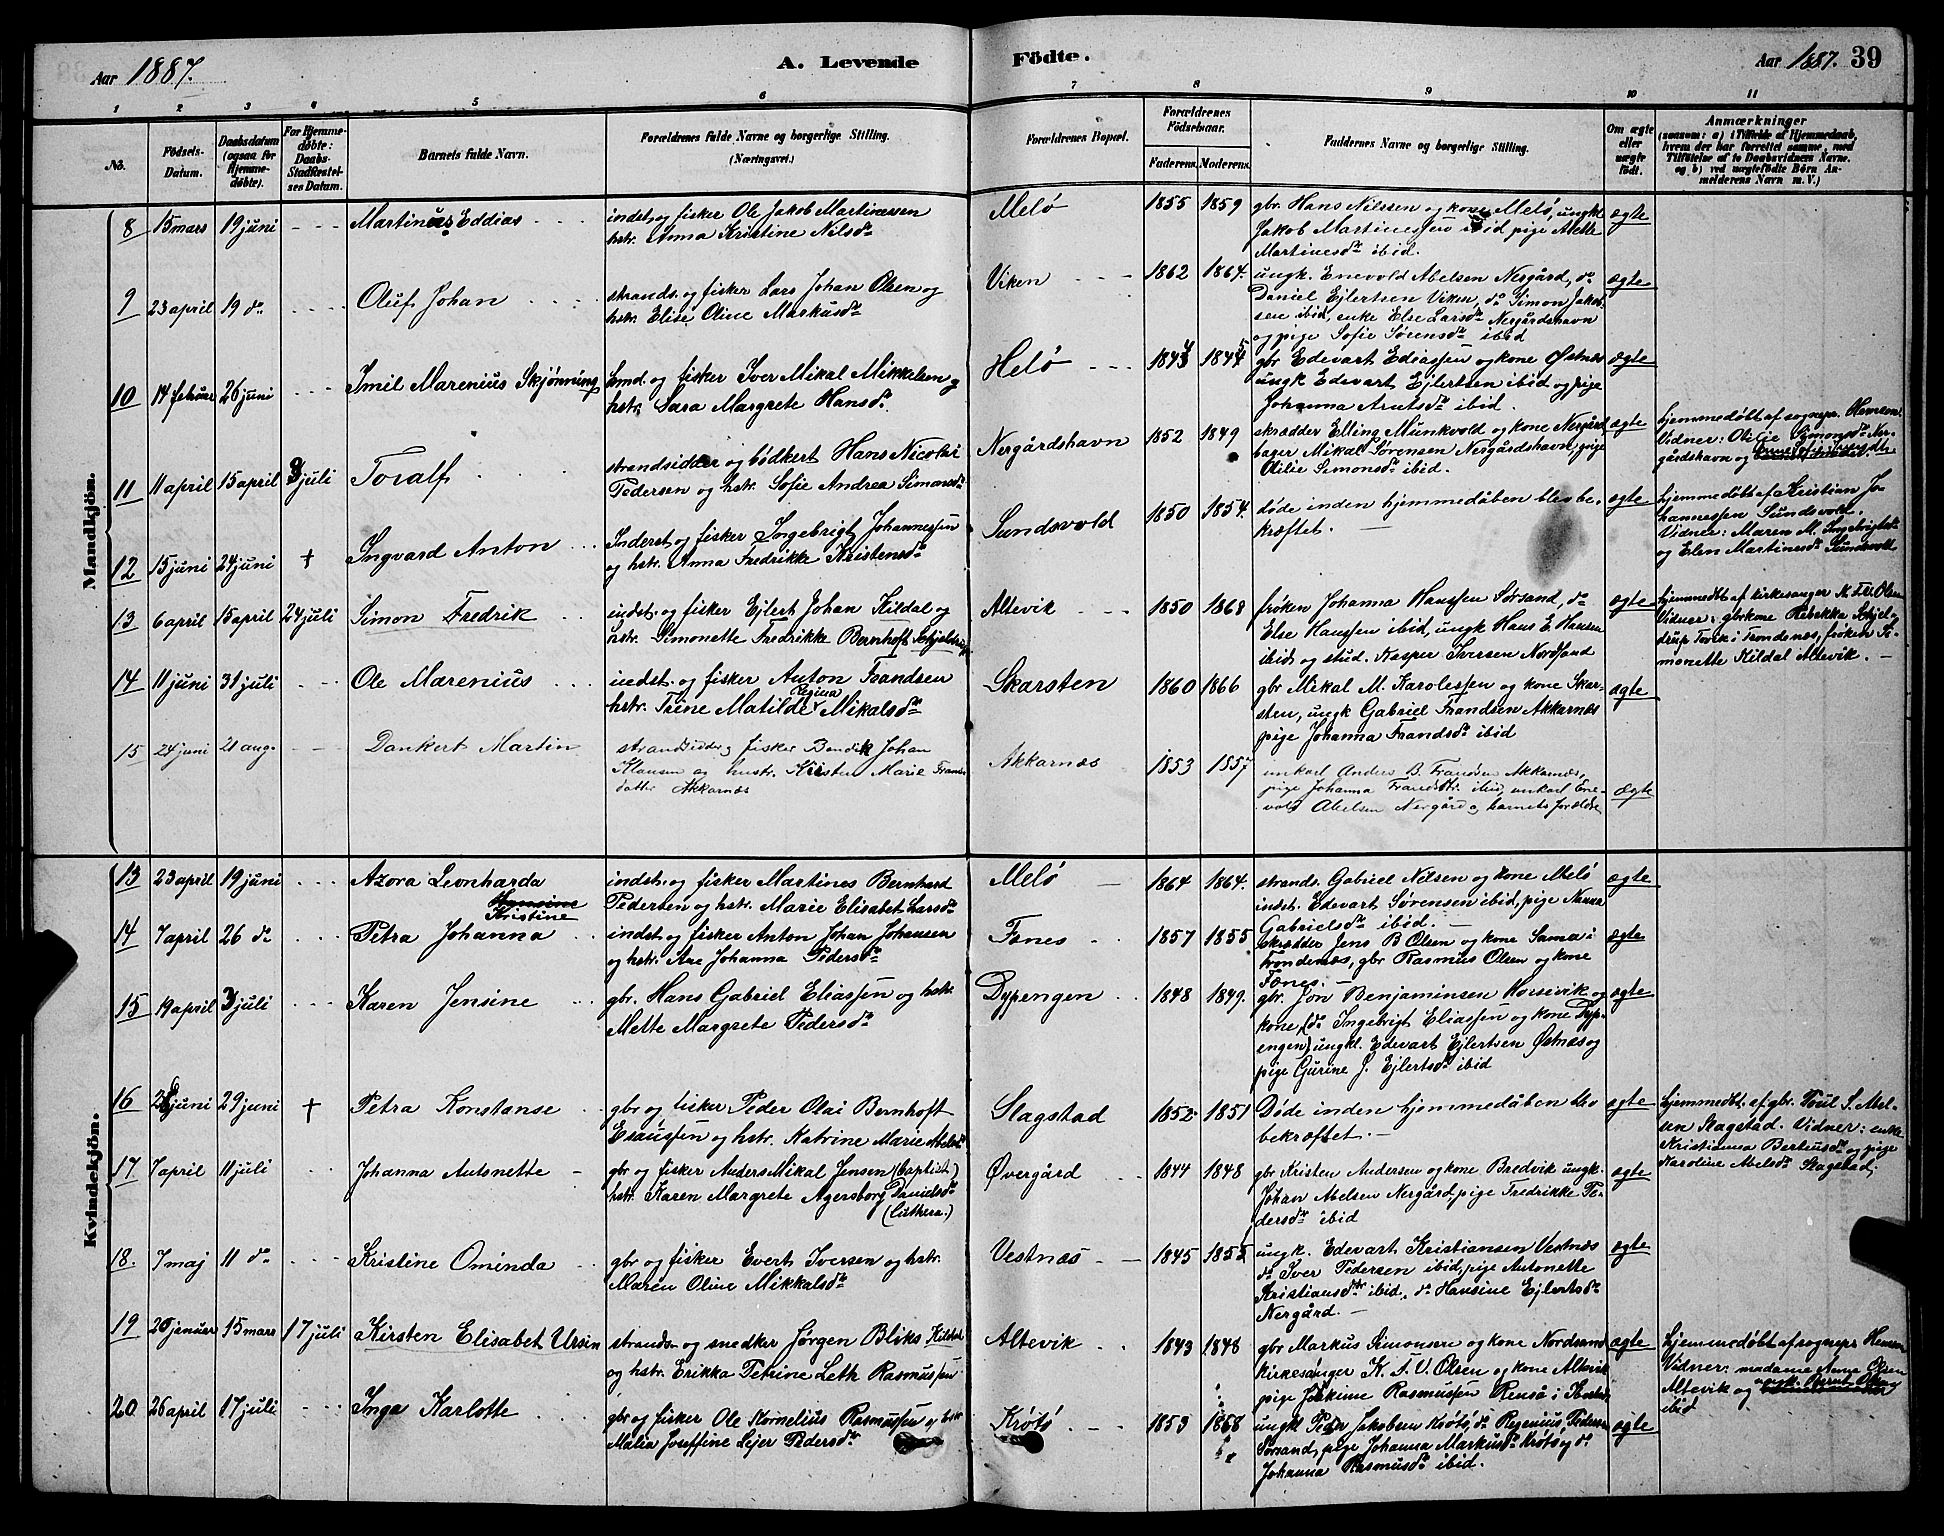 Aar 1887.
A. Levende
Födte.
Aar 1887. 39
1 2 3 4 5 6 7 8 9 10 11
No.
Födsels-
Datum.
Daabsdatum
(ogsaa for
Hjemme-
döbte).
For Hjemme-
döbte:
Daabs-
Stadfæstel-
ses Datum.
Barnets fulde Navn.
Forældrenes fulde Navne og borgerlige Stilling.
(Næringsvei.)
Forældrenes Bopæl.
Forældrenes
Födselsaar.
Faderens. Moderens.
Faddernes Navne og borgerlige Stilling.
Om ægte
eller
uægte
födt.
Anmærkninger
(saasom: a) i Tilfælde af Hjemmedaab,
hvem der har forrettet samme, med
Tilföielse af to Daabsvidners Navne.
og b) ved uægtefödte Börn An-
melderens Navn m. V.)
Mandkjön.
8 15 mars 19 juni Martinus Eddias
indst. og fisker Ole Jakob Martinessen
hstr. Anna Kristine Nilsdr
Melö 1855 1859
gbr. Hans Nilssen og kone Melö, ungk.
Jakob Martinessen ibid pige Alette
Martinesdr ibid.
ægte
9 23 april 19 do Oluf Johan
strands. og fisker Lars Johan Olsen og
hstr. Elise Oline Markusdr
Viken 1862 1864.
ungk. Enevold Abelsen Nergård, do
Daniel Ejlertsen Viken, do Simon Jakob-
sen ibid, enke Else Larsdr Nergårdshavn
og pige Sofie Sörensdr ibid
ægte
10 14 februar 26 juni Imil Marenius Skjönning
Lmd. og fisker Iver Mikal Mikkelsen og
hstr. Sara Margrete Hansdr
Helö 1844 1845
gbr Edevart Ediassen og kone Östnæs
ungk Edevart Ejlertsen ibid og pige
Johanna Arntsdr ibid.
ægte
11 11 april 15 april 3 juli Toralf
strandsidder og bödkert Hans Nicolai
Pedersen og hstr. Sofie Andrea Simonsdr
Nergårdshavn 1852 1849
skrædder Elling Munkvold og kone Nergård
bager Mikal Sörensen Nergårdshavn, pige
Otilie Simonsdr ibid.
ægte
hjemmedöbt af sognepr. Hemsen.
Vidner: Otilie Simonsdr Ner-
gårdshavn og
12 15 juni 24 juni + Ingvard Anton
Inderst og fisker Ingebrigt Johannessen
og hstr. Anna Fredrikke Kristensdr
Sundsvold 1850 1854.
döde inden hjemmedåben blev be-
kræftet.
ægte
hjemmedöbt af Kristian Jo-
hannessen Sundsvold.
Vidner: Maren M. Ingebrigtsdr
og Elen Martinesdr Sundsvold
13 6 april 15 april 24 juli Simon Fredrik
indst. og fisker Ejlert Johan Kildal og
hstr. Simonette Fredrikke Bernhoft Schjelderup
Altevik 1850 1868
fröken Johanna Hanssen Sörsand, do
Else Hanssen ibid, ungk Hans E. Hansen
ibid og stud. Kasper Iversen Nordsand
ægte
hjemmedöbt af kirkesanger K. I. V. Olsen
Vidner: gbrkone Rebekka Schjel-
drup Tovik i Trondenæs, fröken Si-
monette Kildal Altevik.
14 11 juni 31 juli Ole Marenius
indst. og fisker Anton Frandsen
hstr. Trine Matilde Regina Mikalsdr
Skarsten 1860 1866
gbr Mikal M. Karolessen og kone Skar-
sten, ungk Gabriel Frandsen Akkarnæs
pige Johanna Frandsdr ibid
ægte
15 24 juni 21 aug. Dankert Martin
strandsidder og fisker Bendik Johan
Klausen og hustr. Kirsten Marie Frands-
datter Akkarnæs
Akkarnæs 1853 1857
unkarl Anders B. Frandsen Akkarnæs,
pige Johanna Frandsdtr ibid, unkarl Ene-
vold Abelsen Nergård og barnets forældre
ægte
Kvindekjön.
13 23 april 19 juni Azora Leonharda
Hansine
Kristine
indst. og fisker Martines Bernhard
Pedersen og hstr. Marie Elisabet Larsdr
Melö 1864 1864.
strands. Gabriel Nilsen og kone Melö
indst. Edevart Sörensen ibid, pige Nanna
Gabrielsdr ibid.
ægte
14 7 april 26 do Petra Johanna
indst. og fisker Anton Johan Johansen
og hstr. Ane Johanna Pedersdr
Fönes 1857 1855
skrædder Jens B. Olsen og kone Sama i
Trondenæs, gbr Rasmus Olsen og kone
Fönes.
ægte
15 19 april 3 juli Karen Jensine
gbr. Hans Gabriel Eliassen og hstr.
Mette Margrete Pedersdr
Dypengen 1848 1849.
gbr. Jon Benjaminsen Horsevik og
kone, (do Ingebrigt Eliassen og kone Dyp-
engen) ungkl. Edevart Ejlertsen Östnæs og
pige Gurine J. Ejlertsdr ibid
ægte
16 26 juni 29 juni + Petra Konstanse
gbr og fisker Peder Olai Bernhoft
Esaussen og hstr. Katrine Marie Abelsdr
Slagstad 1852 1851
Döde inden hjemmedåben blev
bekræftet.
ægte
hjemmedöbt. af gbr. Poul S. Abel-
sen Slagstad. Vidner: enke
Kristianna Berteusdr og pige
Karoline Abelsdr Slagstad.
17 7 april 11 juli Johanna Antonette
gbr og fisker Anders Mikal Jensen (baptist)
hstr. Karen Margrete Agersborg Danielsdr
(Luthera.)
Övergård 1844 1848
gbr Kristen Andersen og kone Bredvik ungk.
Johan Abelsen Nergård, pige Fredrikke Pe-
dersdr ibid
ægte
18. 7 maj 11 do Kristine Ominda
gbr og fisker Evert Iversen og hstr.
Maren Oline Mikkalsdr
Vestnæs 1845 1855
ungk. Edevart Kristiansen Vestnæs
do Iver Pedersen ibid, pige Antonette
Kristiansdr ibid, do Hansine Ejlertsdr
Nergård.
ægte
19 20 januar 15 mars 17 juli Kirsten Elisabet Ursin
strandsr og snedker Jörgen Bliks Kildal
og hstr. Erikka Petrine Leth Rasmussen
Altevik 1843 1848
gbr Markus Simonsen og kone Nordsand
kirkesånger K. I. V. Olsen og kone Altevik
pige Jokkine Rasmussen Rensö i
ægte
hjemmedöbt af sognepr Hemsen
Vidner: madame Anne Olsen
Altevik og
ibid
20 26 april 17 juli Inga Karlotte
gbr og fisker Ole Kornelius Rasmussen og hstr
Malia Joseffine Lejer Pedersdr
Krötö 1853 1858
ungk Peder Jakobsen Krötö, do Regenius Pedersen
Sörsand, pige Johanna Markusdr Krötö og do
Johanna Rasmusdr ibid.
ægte